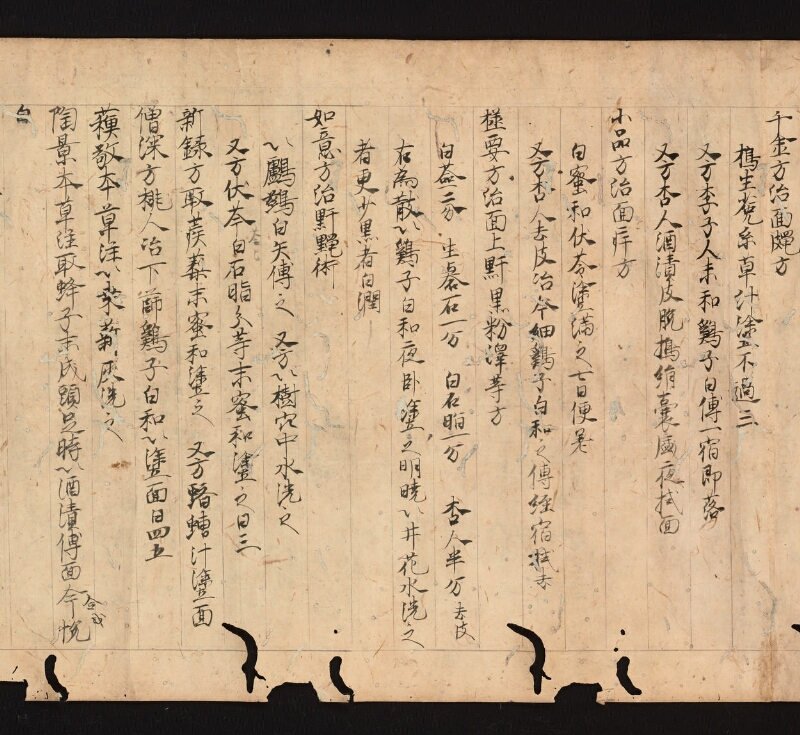 千金方治面䵟方
擣生菟糸草汁塗不過三
又方李子人末和鷄子白傅一宿即落
又方杏人酒漬皮脱擣絹囊盛夜拭面
小品方治面䵟方
白蜜和伏苓塗滿之七日便差
又方杏人去皮冶令細鷄子白和之傅經宿拭去
極要方治面上䵟黒粉滓等方
白蘞二分 生礜石一分 白石脂一分 杏人半分去皮
右為散以鷄子白和夜臥塗之明暁以井花水洗之
者更少黒者白潤
如意方治䵟䵴術
以鸕鷀白矢傅之 又方以樹穴中水洗之
又方伏苓白石脂分等末蜜和塗之日三
新録方取蒺䔧末蜜和塗之 又方蠐螬汁塗面
僧深方桃人冶下篩鷄子白和以塗面日四五
蘓敬本草注以桒薪灰洗之
陶景本草注取蜂子未成頭足時以酒漬傅面令悦
白